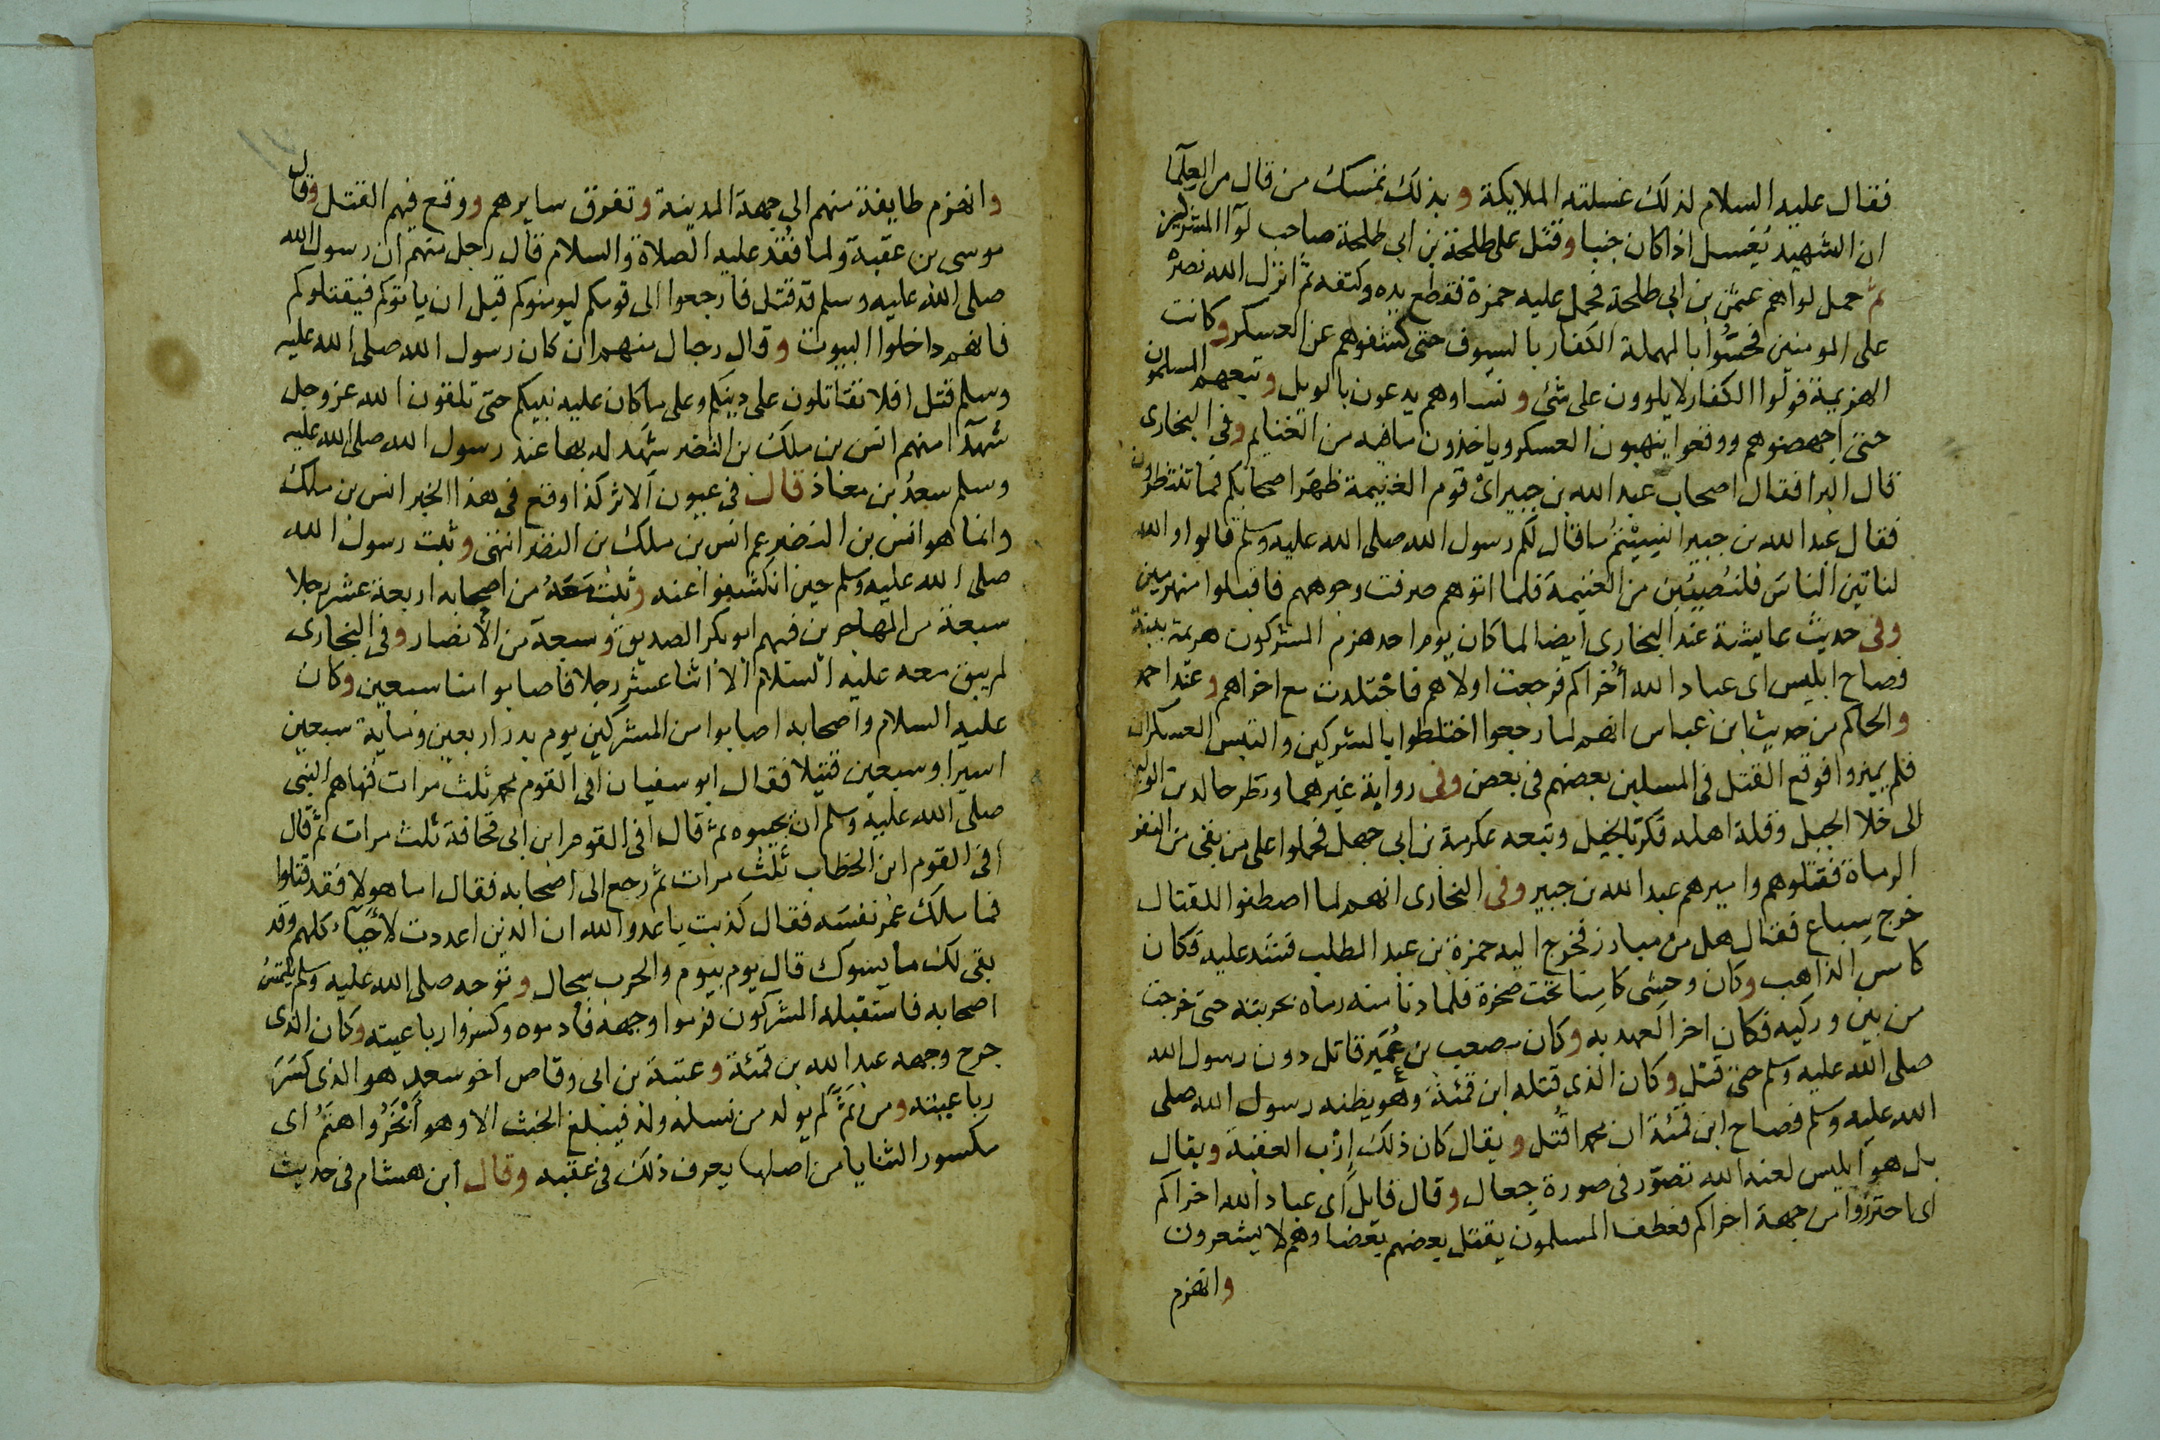 فقال عليه السلام لذلك غسلته الملايكة وبذلك تمسك من قال من العلما
ان الشهيد يغسل اذا كان جنبا وقتل على طلحة بن ابى طلحة صاحب لوآ المشركين
ثم حمل لواهم عثمن بن ابى طلحة فحمل عليه حمزة فقطع يده وكتفه ثم انزل الله نصره
على المومنين فحسُّوا بالمهملة الكفار بالسيوف حتى كشفوهم عن العسكر وكانت
الهزيمة فولّوا الكفار لا يلوون على شئ ونساوهم يدعون بالويل وتبعهم المسلمون
حتى اجهضوهم ووقعوا ينهبون العسكر وياخذون ما فيه من الغنايم وفى البخارى
قال البرا فقال اصحاب عبد الله بن جبير اىْ قوم الغنيمة ظهرَ اصحابكم فما تنتظرون
فقال عبد الله بن جبير انسيتم ما قال لكم رسول الله صلى الله عليه وسلم قالوا والله
لناتين الناسَ فلنصيبَن من الغنيمة فلما اتوهم صرفت وجوههم فاقبلوا منهزمين
وفى حديث عايشة عند البخارى ايضا لما كان يوم احد هزم المشركون هزيمة بينة
فصاح ابليس اى عباد الله أُخراكم فرجعت اولاهم فاجتلدت مع اخراهم وعند احمد
والحاكم من حديث ابن عباس انهم لما رجعوا اختلطوا بالمشركين والتبس العسكران
فلم يميزوا فوقع القتل فى المسلمين بعضهم فى بعض وفى رواية غيرهما ونظر خالد بن الوليد
الى خلا الجبل وقلة اهله فكر بالخيل وتبعه عكرمة بن ابى جهل فحملوا على من بقى من النفر
الرماة فقتلوهم واميرهم عبد الله بن جبير وفى البخارى انهم لما اصطفوا للقتال
خرج سباع فقال هل من مبارز فخرج اليه حمزة بن عبد المطلب فشد عليه فكان
كامس الذاهب وكان وحشى كامِنا تحت صخرة فلما دنا منه رماه بحربته حتى خرجت
من بين وركيه فكان اخر العهد به وكان مصعب بن عُمَير قاتل دون رسول الله
صلى الله عليه وسلم حتى قتل وكان الذي قتله ابن قمئة وهو يظنه رسول الله صلى
الله عليه وسلم فصاح ابن قمئة ان محمدا قُتل ويقال كان ذلك إزب العقبة ويقال
بل هو ابليس لعنه الله تصوّر فى صورة جِعال وقال قايل اى عباد الله اخراكم
اى احترزوا من جهة اخراكم فعطف المسلمون يقتل بعضهم بعضا وهم لا يشعرون
وانهزم
وانهزم طايفة منهم الى جهة المدينة وتفرق سايرهم ووقع فيهم القتل وقال
موسى بن عقبة ولما فُقد عليه الصلاة والسلام قال رجل منهم ان رسول الله
صلى الله عليه وسلم قد قتل فارجعوا الى قومكم ليومنوكم قبل ان ياتوكم فيقتلوكم
فانهم داخلوا البيوت وقال رجال منهم ان كان رسول الله صلى الله عليه
وسلم قتل افلا تقاتلون على دينكم وعلى ما كان عليه نبيكم حتى تلقون الله عز وجل
شهدآ منهم انس بن ملك بن النضر شهد له بها عند رسول الله صلى الله عليه
وسلم سعدُ ابن معاذ قال فى عيون الاثر كذا وقع فى هذا الخبر انس بن ملك
وانما هو انس بن النضر عم انس بن ملك بن النضر انتهى وثبت رسول الله
صلى الله عليه وسلم حين انكشفوا عنه وثبت معهُ من اصحابه اربعة عشر رجلا
سبعة من المهاجرين فيهم ابو بكر الصديق وسبعة من الأنصار وفى البخارى
لم يبق معه عليه السلام الا اثنا عشر رجلا فاصابوا منا سبعين وكان
عليه السلام واصحابه اصابوا من المشركين يوم بدر اربعين وماية سبعين
اسيرا وسبعين قتيلا فقال ابو سفيان افى القوم محمد ثلث مرات فنهاهم النبى
صلى الله عليه وسلم ان يجيبوه ثم قال افى القوم ابن ابى قحافة ثلث مرات ثم قال
افى القوم ابن الخطاب ثلث مرات ثم رجع الى اصحابه فقال اما هولا فقد قتلوا
فما ملك عُمر نفسَه فقال كذبت يا عدو الله ان الذين اعددت لأَحيآء كلهم وقد
بقى لك ما يسوك قال يوم بيوم والحرب سجال وتوجه صلى الله عليه وسلم يلتمس
اصحابه فاستقبله المشركون فرموا وجهه فادموه وكسروا رباعيته وكان الذى
جرح وجهه عبد الله بن قمئة وعتبة بن ابى وقاص اخو سعد هو الذى كسَرَ
رباعيته ومن ثَمّ لم يولد من نسله ولد فيبلغ الحنث الا وهو أَبْخَرُ واهتَمُ اى
مكسور الثنايا من اصلها يعرف ذلك فى عقبه وقال ابن هشام فى حديث